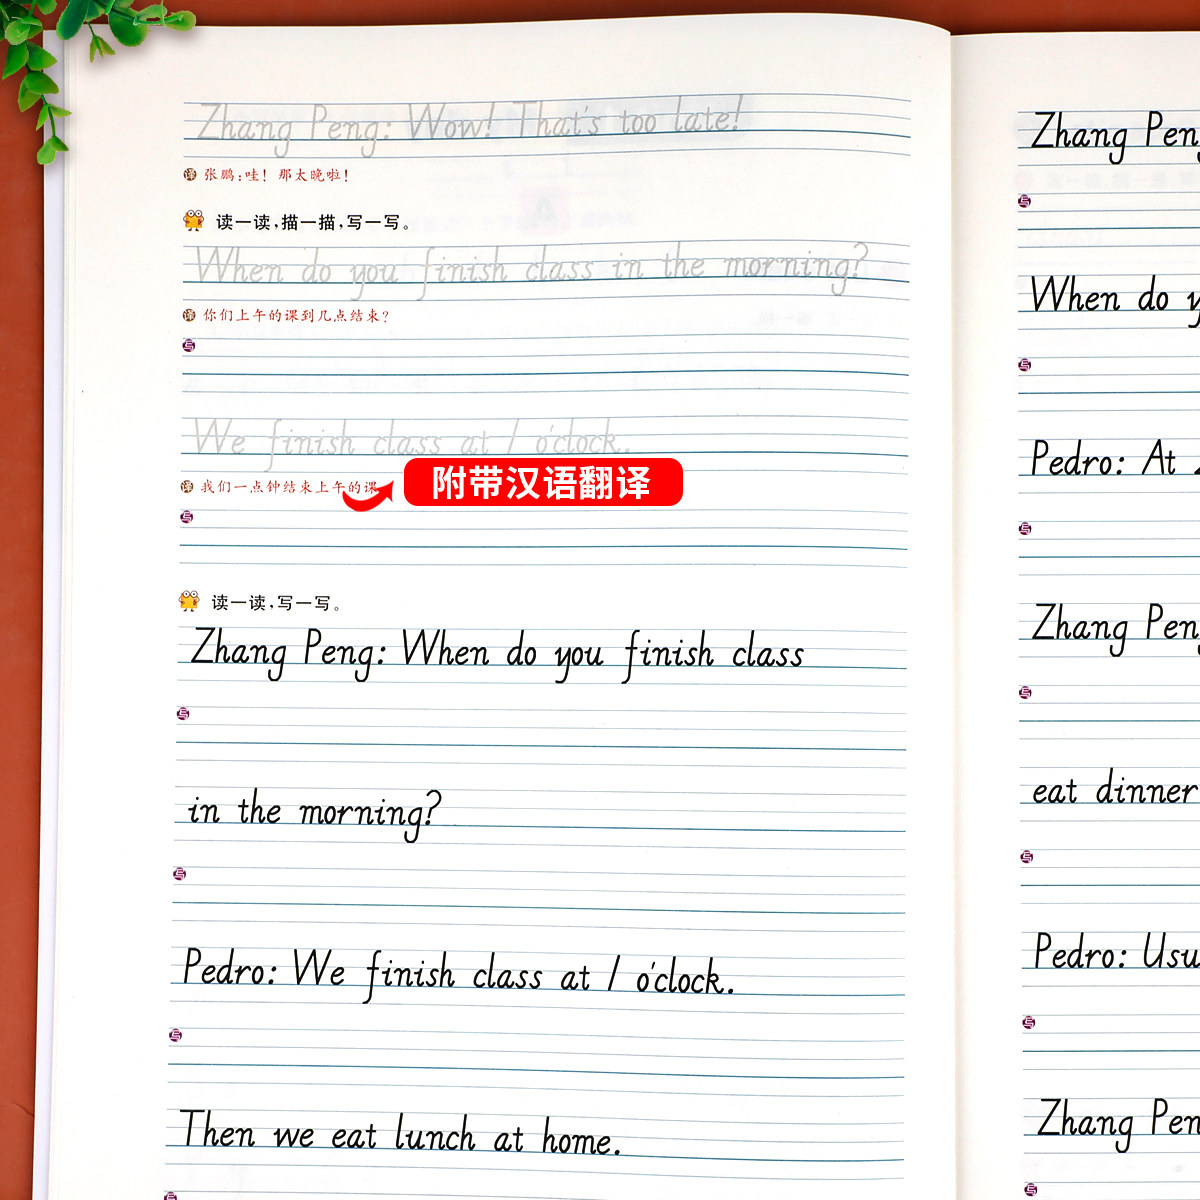 Zhang Peng: Wow! That's too late!
译 张鹏:哇! 那太晚啦!
读一读,描一描,写一写。
When do you finish class in the morning?
译 你们上午的课到几点结束?
写
We finish class at 1 o'clock.
译 我们一点钟结束上午的课
附带汉语翻译
写
读一读,写一写。
Zhang Peng: When do you finish class
写
in the morning?
写
Pedro: We finish class at 1 o'clock.
写
Then we eat lunch at home.
写
Zhang Pen
写
When do y
写
Pedro: At
写
Zhang Pen
写
eat dinner
写
Pedro: Usu
写
Zhang Pen
写